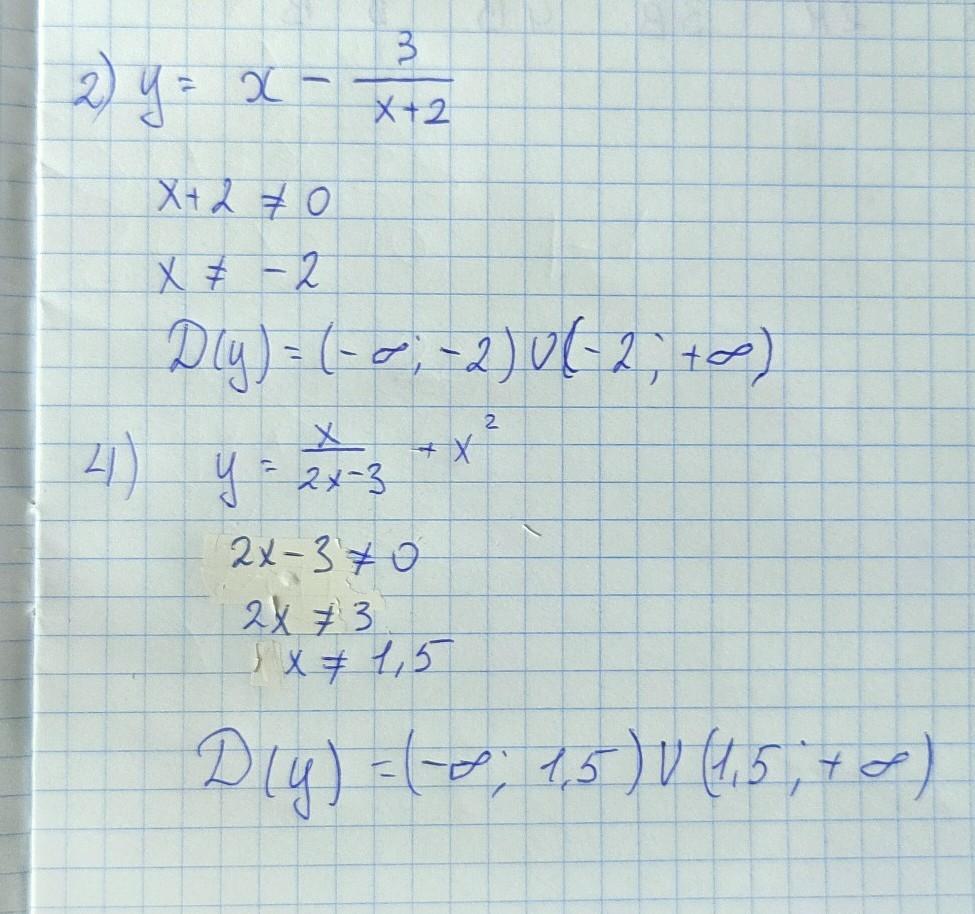 2) y = x - 3/(x+2)
x+2 ≠ 0
x ≠ -2
D(y) = (-∞; -2) ∪ (-2; +∞)
4) y = x/(2x-3) + x²
2x-3 ≠ 0
2x ≠ 3
x ≠ 1,5
D(y) = (-∞; 1,5) ∪ (1,5; +∞)